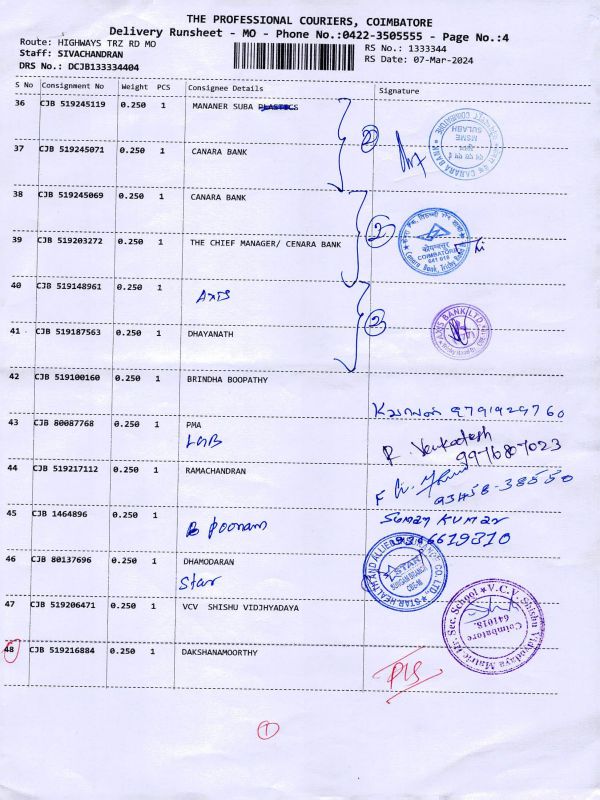 THE PROFESSIONAL COURIERS, COIMBATORE
Delivery Runsheet - MO - Phone No.:0422-3505555 - Page No.:4
Route: HIGHWAYS TRZ RD MO RS No.: 1333344
Staff: SIVACHANDRAN RS Date: 07-Mar-2024
DRS No.: DCJB133334404
S No Consignment No Weight PCS Consignee Details Signature
36 CJB 519245119 0.250 1 MANANER SUBA PLASTICS
MSME
SULABH
CANARA BANK
COIMBATORE
37 CJB 519245071 0.250 1 CANARA BANK
2
38 CJB 519245069 0.250 1 CANARA BANK
39 CJB 519203272 0.250 1 THE CHIEF MANAGER/ CENARA BANK
2
कोयम्बत्तूर
COIMBATORE
641 018
Canara Bank, Trichy Road
40 CJB 519148961 0.250 1
AXIS
41 CJB 519187563 0.250 1 DHAYANATH
2
AXIS BANK LTD.
42 CJB 519100160 0.250 1 BRINDHA BOOPATHY
9791929760
43 CJB 80087768 0.250 1 PMA
LGB
R. Venkatesh
9976807023
44 CJB 519217112 0.250 1 RAMACHANDRAN
93458-38550
45 CJB 1464896 0.250 1
B Poonam
Suman Kumar
6619310
46 CJB 80137696 0.250 1 DHAMODARAN
Star
STAR HEALTH AND ALLIED INSURANCE CO. LTD.
STAR
47 CJB 519206471 0.250 1 VCV SHISHU VIDJHYADAYA
V.C.V. Shishu Vidyodaya Matric Hr. Sec. School
Coimbatore
641018.
48 CJB 519216884 0.250 1 DAKSHANAMOORTHY
1